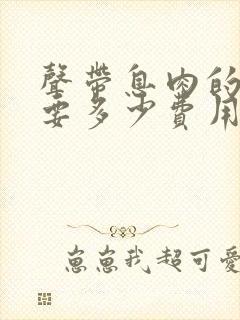 聲帶息肉的
要多少費用
崽崽我超可愛